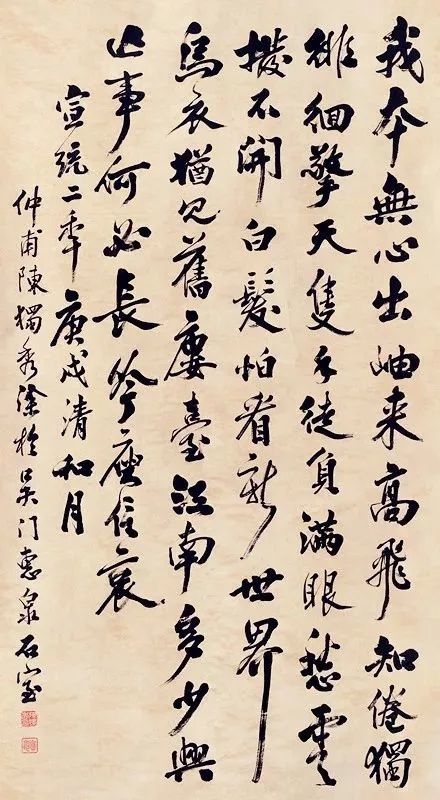 我本無心出岫来高飛知倦獨
徘徊擎天隻手徒負滿眼愁雲
撥不開白髮怕看新世界
烏衣猶見舊廔臺江南多少興
亡事何必長吟庾信哀
宣統二秊庚戌清和月
仲甫陳獨秀塗於吴门惠泉石室